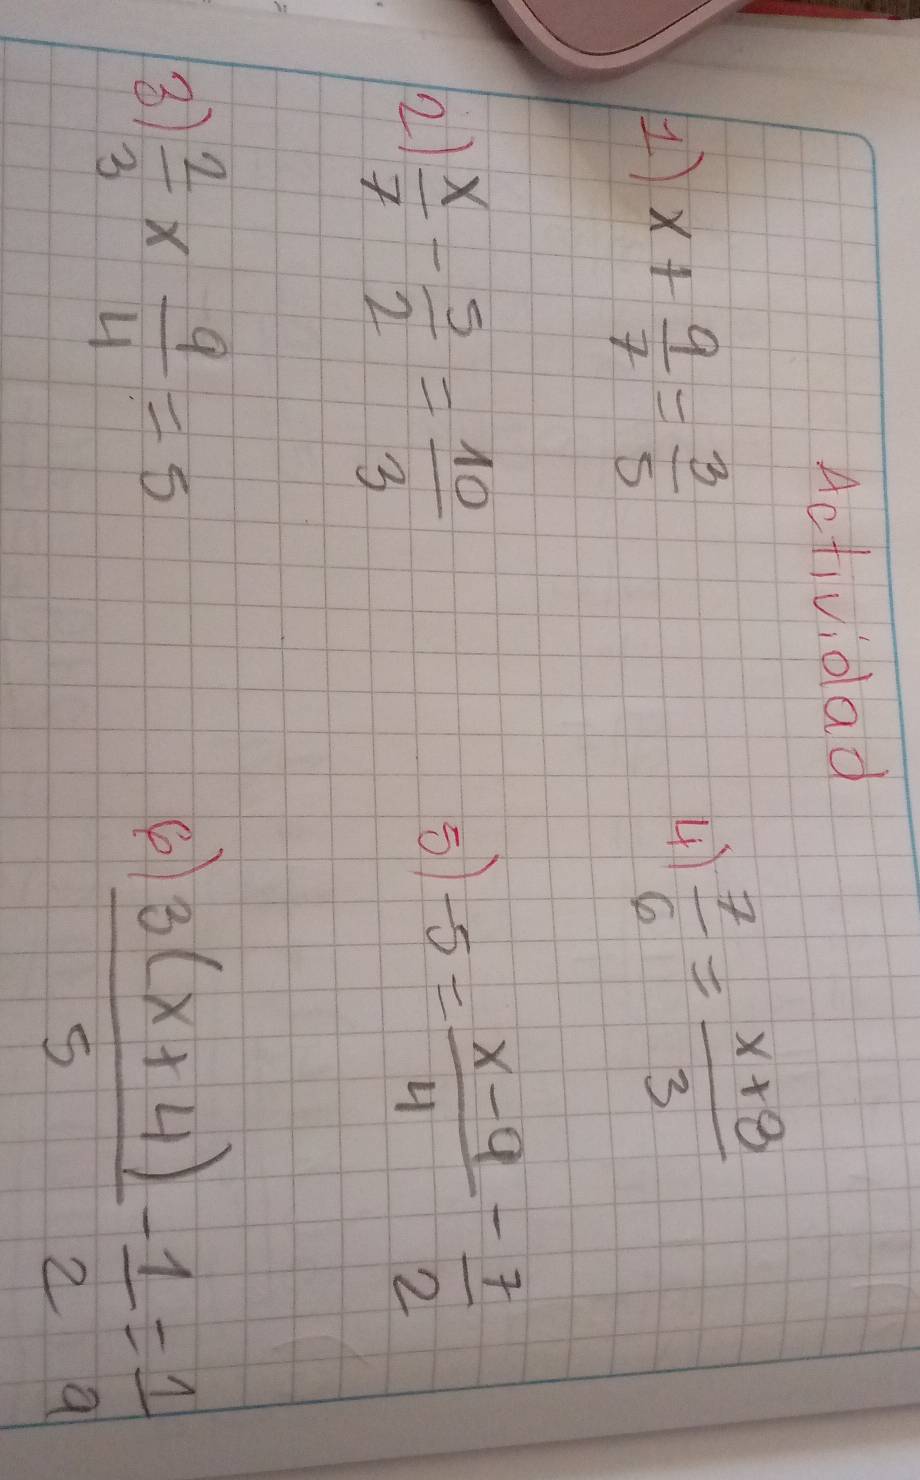 Actividad
1) x + 9/7 = 3/5
2) x/7 - 5/2 = 10/3
3) 2/3 x - 9/4 = 5
4) 7/6 = x+8/3
5) -5 = x-9/4 - 7/2
6) 3(x+4)/5 - 1/2 = 1/9